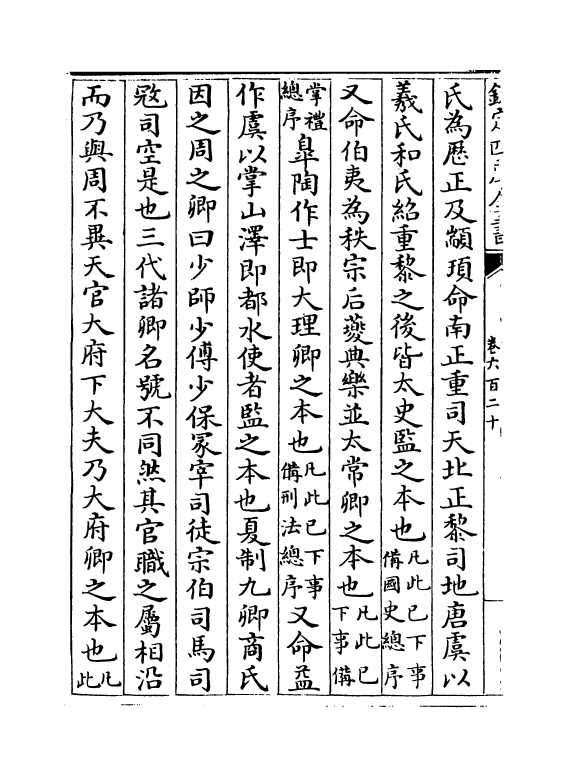 欽定四庫全書
卷六百二十
氏為歴正及顓頊命南正重司天北正黎司地唐虞以
羲氏和氏紹重黎之後皆太史監之本也凡此已下事備國史總序
又命伯夷為秩宗后夔典樂並太常卿之本也凡此已下事備
掌禮總序臯陶作士即大理卿之本也凡此已下事備刑法總序又命益
作虞以掌山澤即都水使者監之本也夏制九卿商氏
因之周之卿曰少師少傅少保冢宰司徒宗伯司馬司
宼司空是也三代諸卿名號不同然其官職之屬相沿
而乃與周不異天官大府下大夫乃大府卿之本也凡此